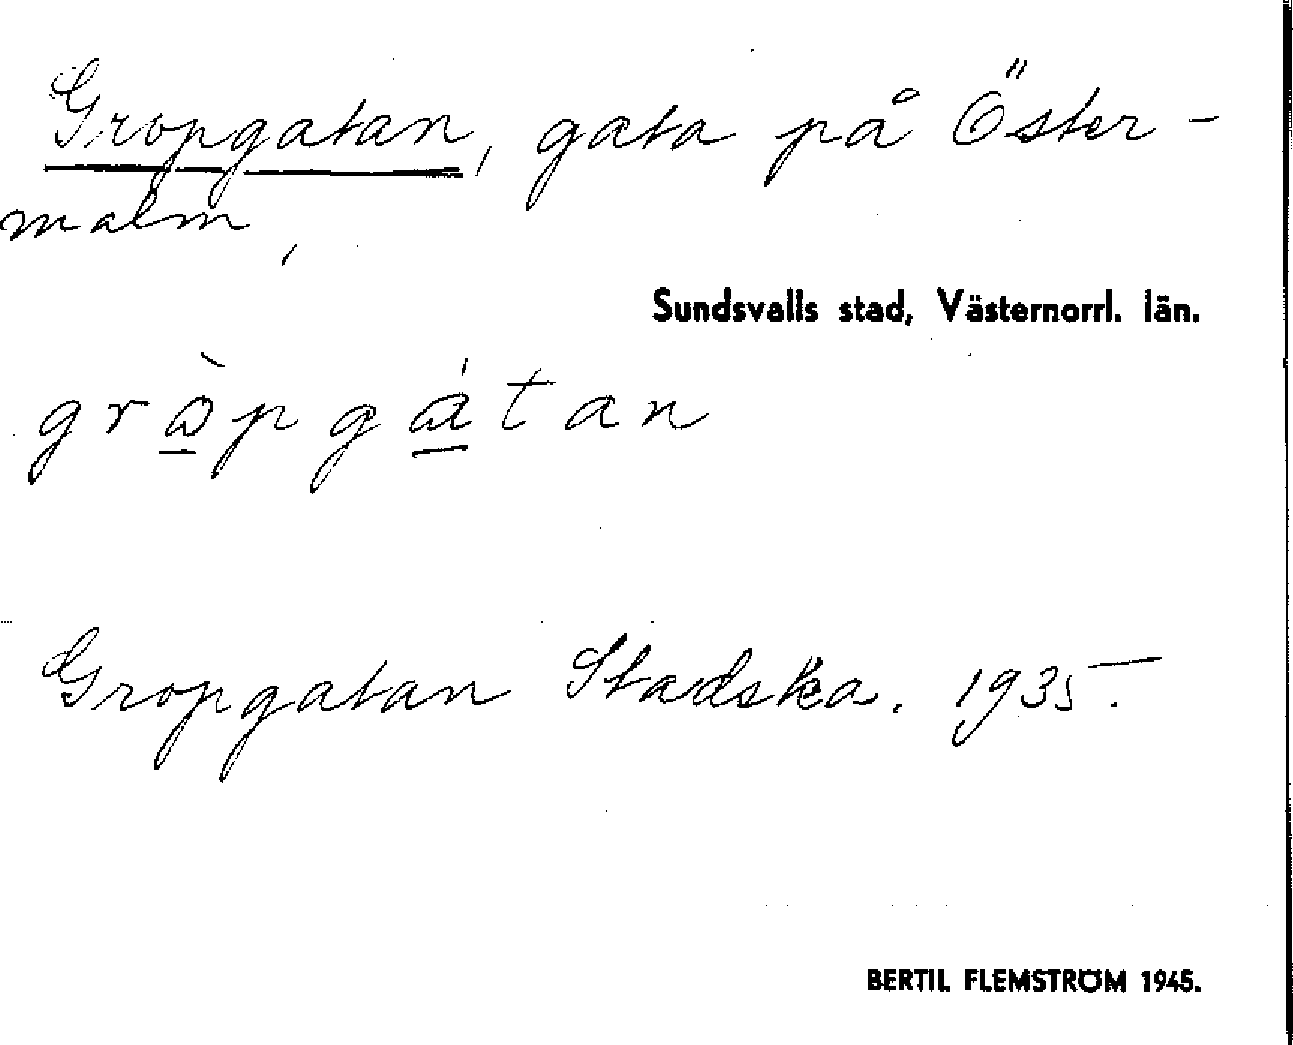 Gropgatan, gata på Öster-
malm,
Sundsvalls stad, Västernorrl. län.
grò̲pgá̲tan
Gropgatan Stadska. 1935.
BERTIL FLEMSTRÖM 1945.